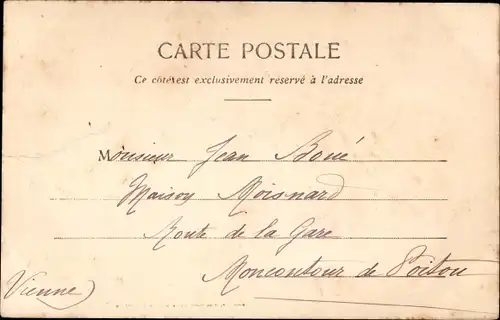 CARTE POSTALE
Ce côté est exclusivement réservé à l'adresse
Monsieur Jean Boué
Maison Moisnard
Route de la Gare
Moncontour de Poitou
(Vienne)